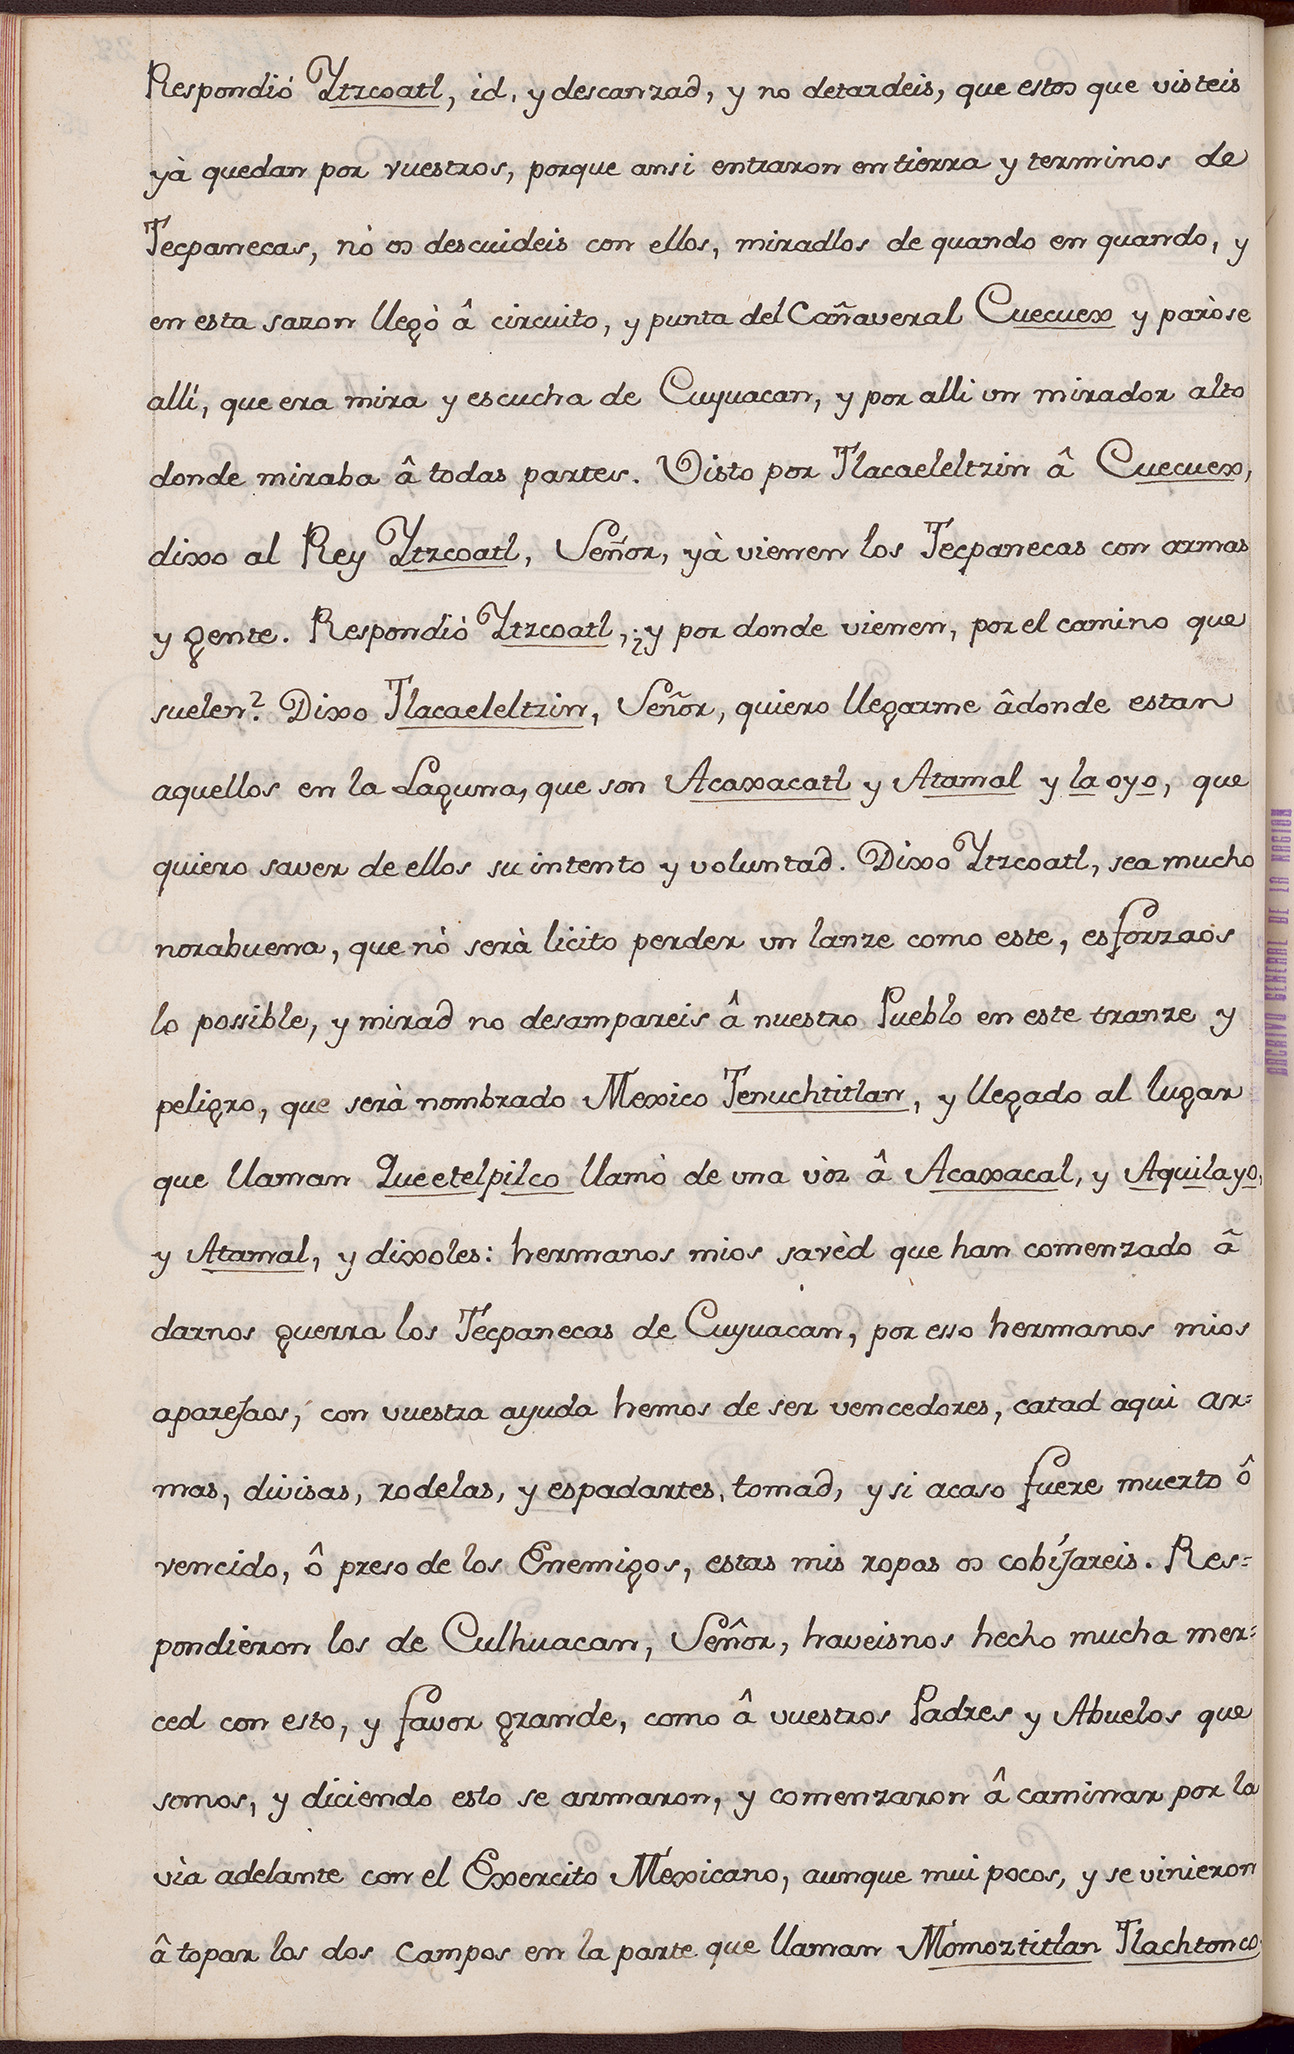 Respondió Ytzcoatl, id, y descanzad, y no detardeis, que estos que visteis
yà quedan por vuestros, porque ansi entraron en tierra y terminos de
Tecpanecas, nò os descuideis con ellos, miradlos de quando en quando, y
en esta sazon llegò â circuito, y punta del Cañaveral Cuecuex y paròse
allí, que era mira y escucha de Cuyuacan, y por alli un mirador alto
donde miraba â todas partes. Visto por Tlacaeleltzin â Cuecuex,
dixo al Rey Ytzcoatl, Señor, yà vienen los Tecpanecas con armas
y gente. Respondió Ytzcoatl, ¿y por donde vienen, por el camino que
suelen? Dixo Tlacaeleltzin, Señor, quiero llegarme âdonde estan
aquellos en la Laguna, que son Acaxacatl y Atamal y la oyo, que
quiero saver de ellos su intento y voluntad. Dixo Ytzcoatl, sea mucho
norabuena, que nò serà licito perder un lanze como este, esforzaos
lo possible, y mirad no desampareis â nuestro Pueblo en este tranze y
peligro, que serà nombrado Mexico Tenuchtitlan, y llegado al lugar
que llaman Queetelpilco llamò de una vòz â Acaxacal, y Aquilayo,
y Atamal, y dixoles: hermanos mios savèd que han comenzado â
darnos guerra los Tecpanecas de Cuyuacan, por esso hermanos mios
aparejaos, con vuestra ayuda hemos de ser vencedores, catad aqui ar=
mas, divisas, rodelas, y espadartes, tomad, y si acaso fuere muerto ô
vencido, ô preso de los Enemigos, estas mis ropas os cobijareis. Res=
pondieron los de Culhuacan, Señor, haveisnos hecho mucha mer=
ced con esto, y favor grande, como â vuestros Padres y Abuelos que
somos, y diciendo esto se armaron, y comenzaron â caminar por la
vìa adelante con el Exercito Mexicano, aunque mui pocos, y se vinieron
â topar los dos Campos en la parte que llaman Momoztitlan Tlachtonco.
ARCHIVO GENERAL DE LA NACION